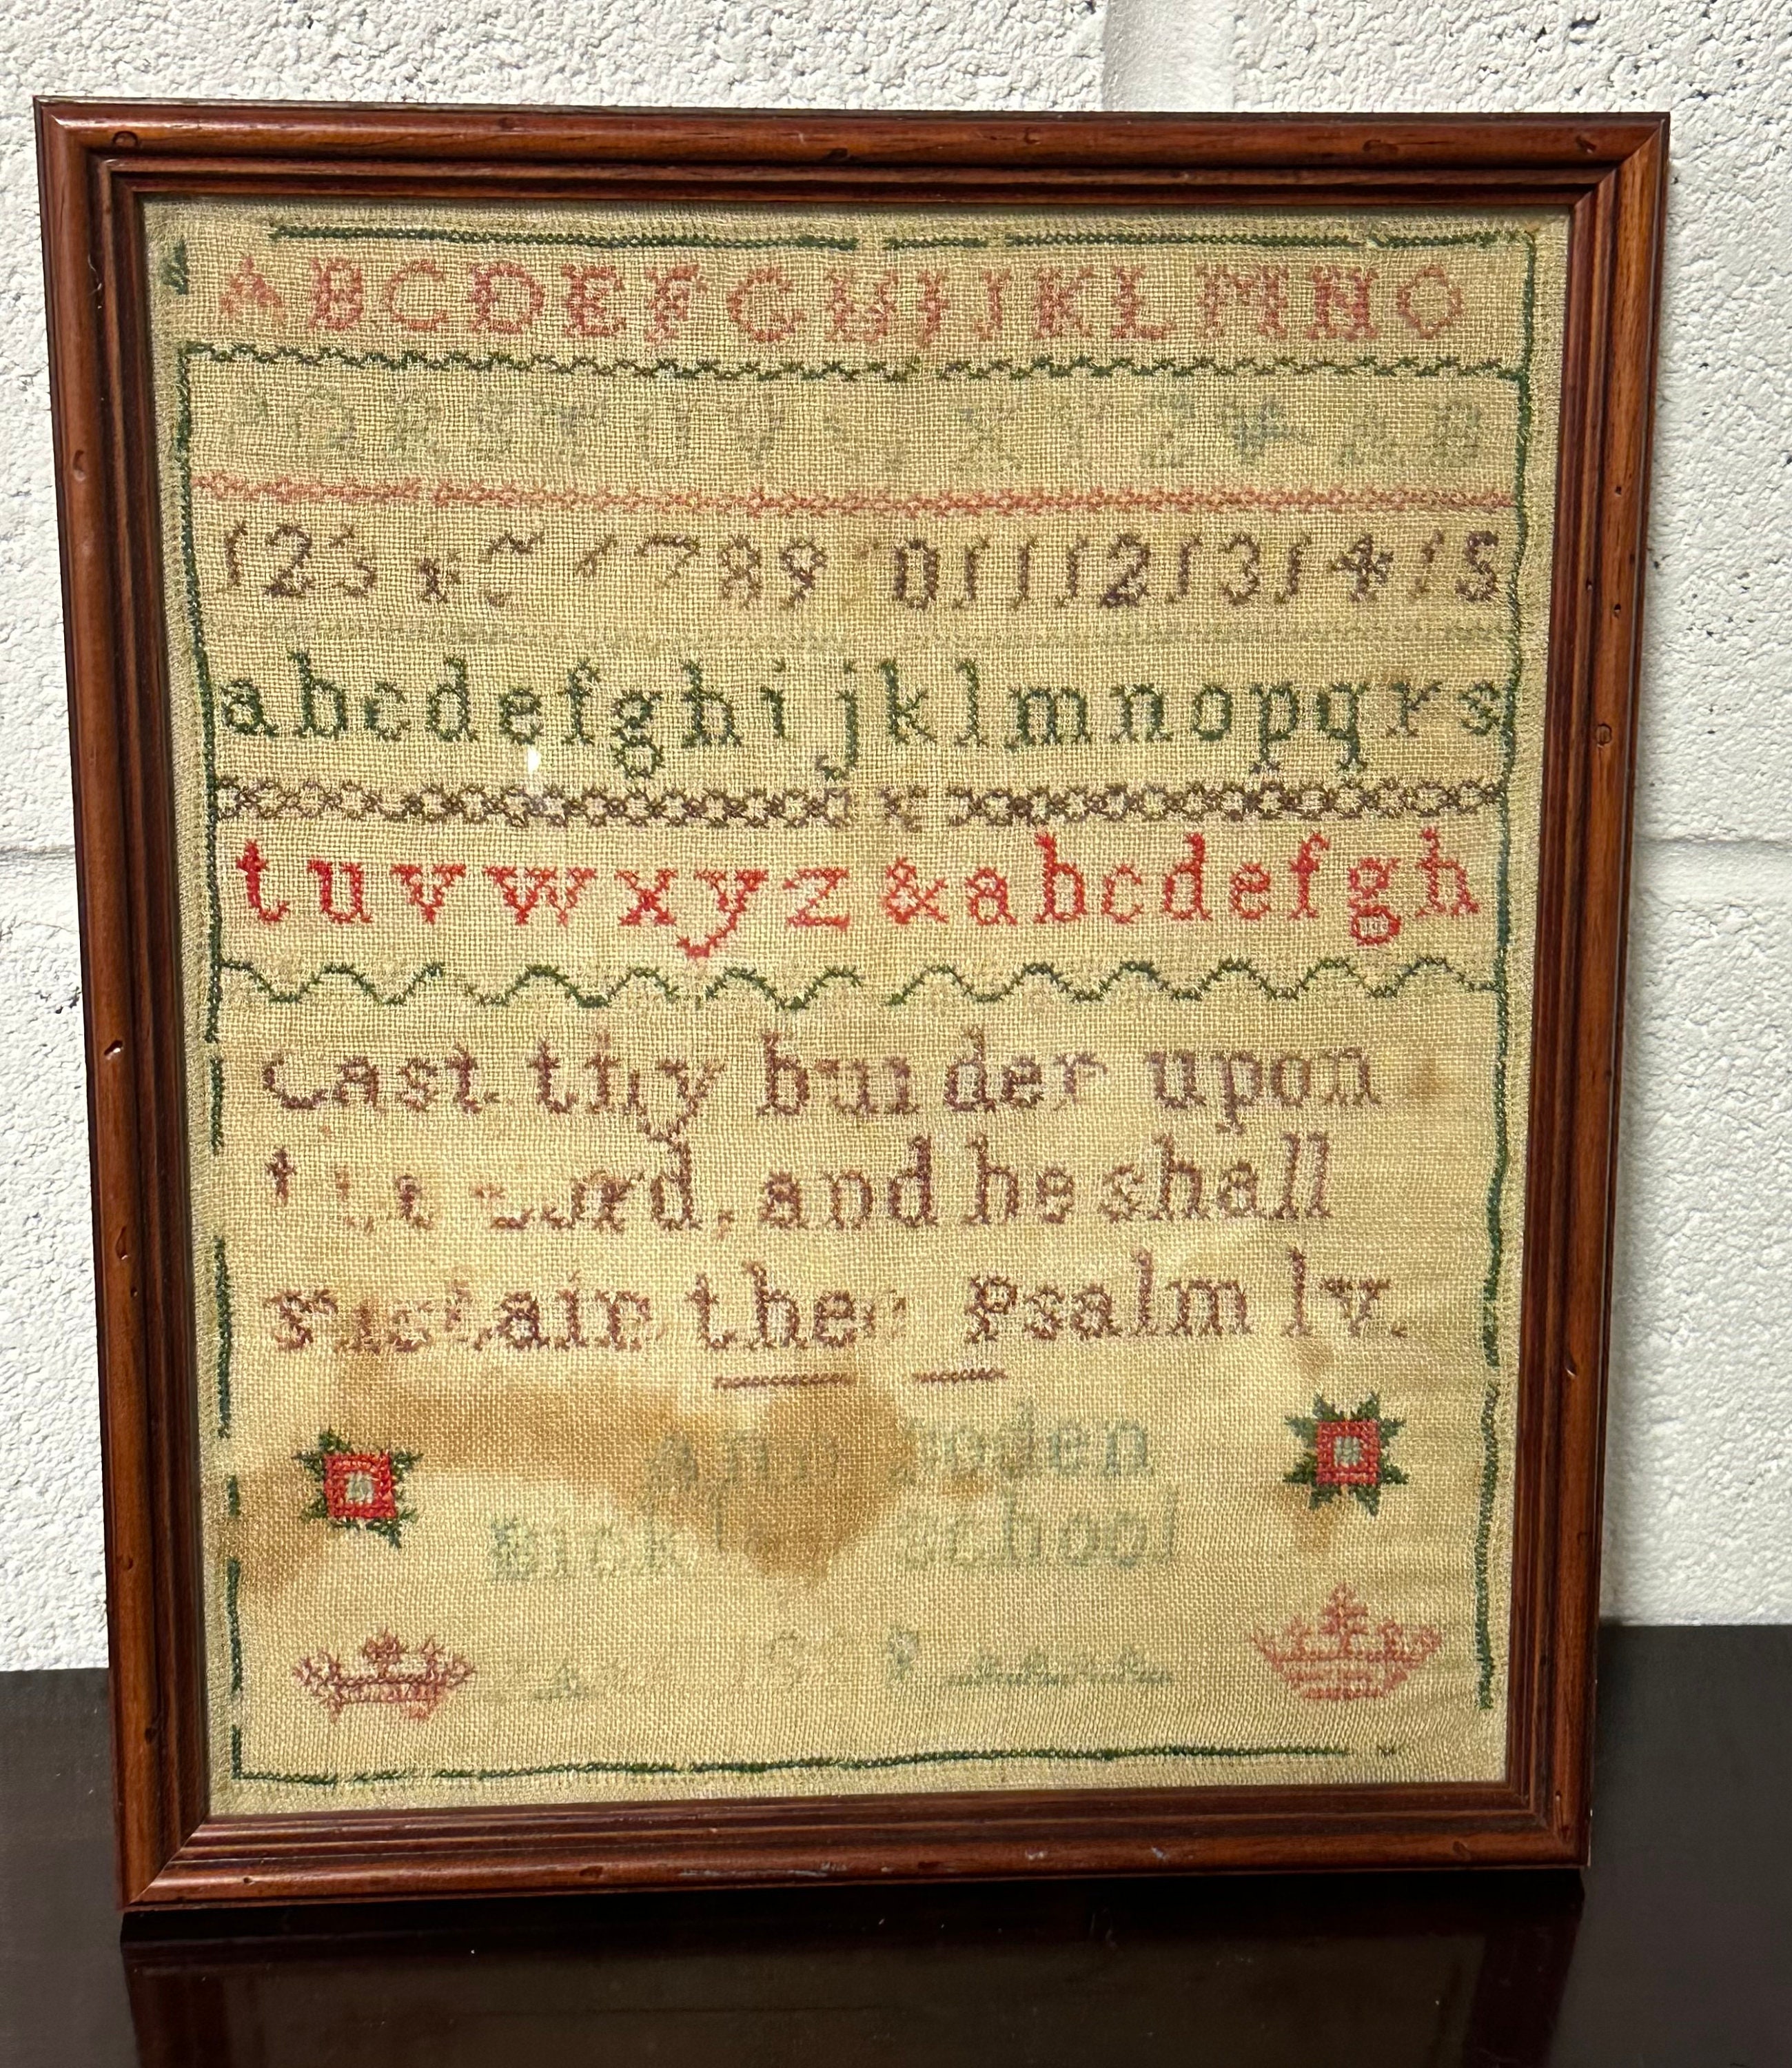 A B C D E F G H I J K L M N O
P Q R S T U V X Y Z & A B
1 2 3 4 5 6 7 8 9 10 11 12 13 14 15
a b c d e f g h i j k l m n o p q r s
t u v w x y z & a b c d e f g h
Cast thy burden upon
the Lord, and he shall
sustain thee Psalm lv.
Ann
School